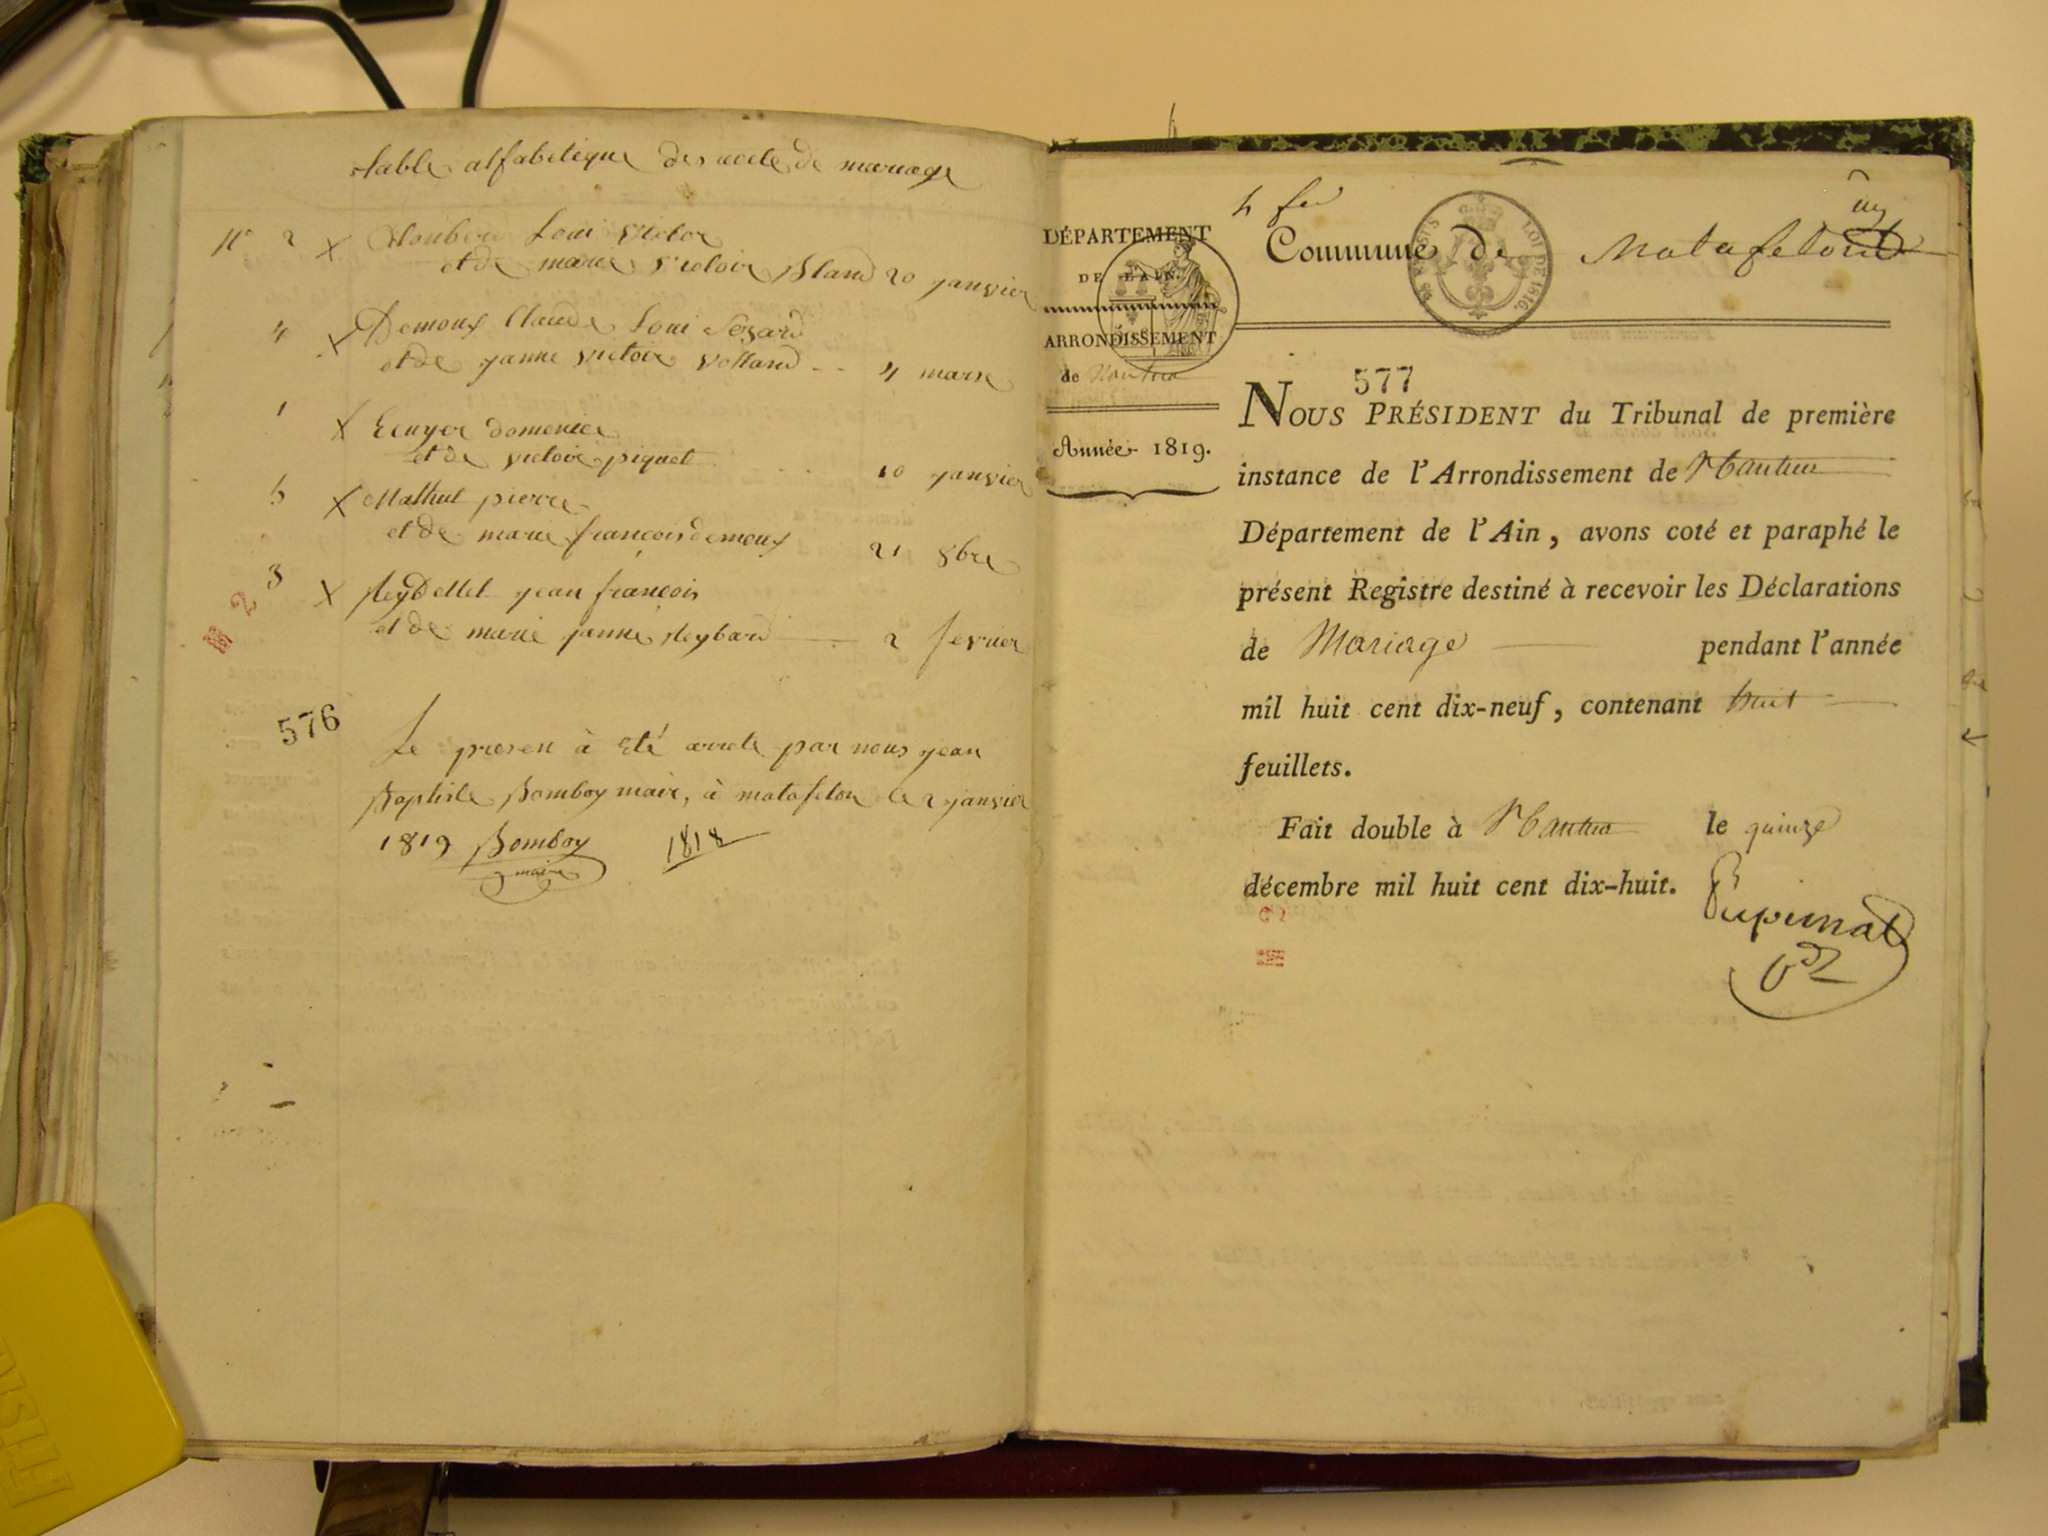 table alfabetique des acte de mariage
N° 2 x Loui Victor
et de marie Victoire Bland 20 janvier
4 x Demoux Claude Loui
et de janne Victoire Volland 4 mars
1 x Ecuyer domenice
et de victoire piquet 10 janvier
5 x Mathut pierre
et de marie françois demoux 21 8bre
3 x Reydellet jean françois
et de marie janne Reybard 2 fevrier
M 2
576
Le presen à été arrete par nous jean
Baptiste Bomboy maire, à matafelon le 2 janvier
1819 Bomboy 1818
maire
DÉPARTEMENT
DE L'AIN.
ARRONDISSEMENT
de Nantua
Année 1819.
Commune de Matafelon
LOI DE 1816.
577
NOUS PRÉSIDENT du Tribunal de première
instance de l'Arrondissement de Nantua
Département de l'Ain, avons coté et paraphé le
présent Registre destiné à recevoir les Déclarations
de Mariage pendant l'année
mil huit cent dix-neuf, contenant huit
feuillets.
Fait double à Nantua le quinze
décembre mil huit cent dix-huit.